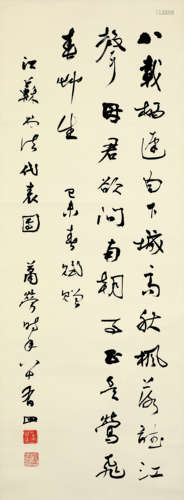 八載栖遲白下城高秋楓落聽江
聲君欲問南朝事正是鶯飛
春艸生 己未春贈
江蘇書法代表團 蕭勞時年八十有四